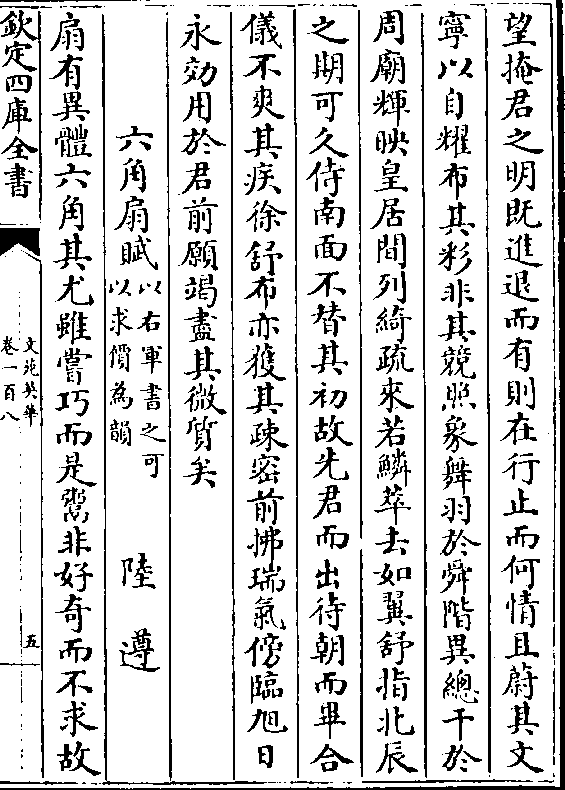 望掩君之明既進退而有則在行止而何情且蔚其文
寧以自耀布其彩非其競照象舞羽於舜階異總干於
周廟輝映皇居間列綺疏來若鱗萃去如翼舒指北辰
之期可久侍南面不替其初故先君而出待朝而畢合
儀不爽其疾徐舒布亦獲其疎密前拂瑞氣傍臨旭日
永効用於君前願竭盡其微質矣
六角扇賦以右軍書之可以求價為韻 陸遵
扇有異體六角其尤雖嘗巧而是鬻非好奇而不求故
欽定四庫全書
文苑英華
卷一百八
五